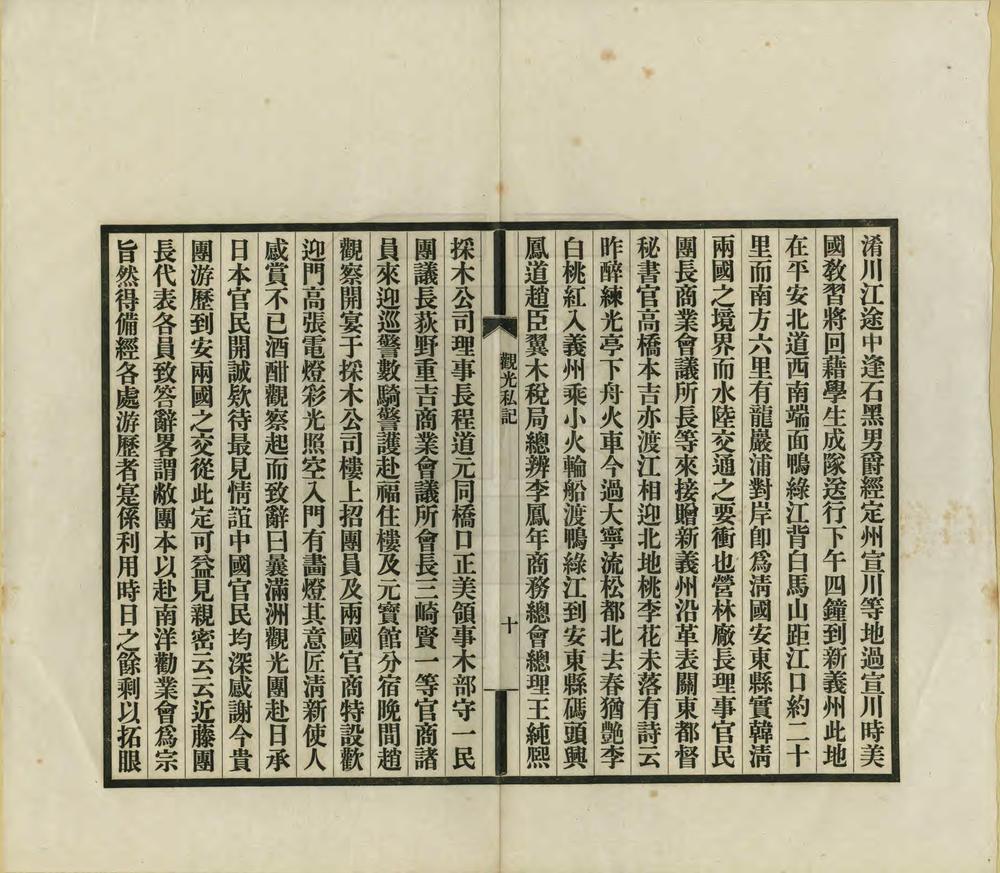 淆川江途中逢石黑男爵經定州宣川等地過宣川時美
國教習將回藉學生成隊送行下午四鐘到新義州此地
在平安北道西南端面鴨綠江背白馬山距江口約二十
里而南方六里有龍巖浦對岸卽爲清國安東縣實韓清
兩國之境界而水陸交通之要衝也營林廠長理事官民
團長商業會議所長等來接贈新義州沿革表關東都督
秘書官高橋本吉亦渡江相迎北地桃李花未落有詩云
昨醉練光亭下舟火車今過大寧流松都北去春猶艷李
白桃紅入義州乘小火輪船渡鴨綠江到安東縣碼頭興
鳳道趙臣翼木稅局總辨李鳳年商務總會總理王純熙
觀光私記
十
採木公司理事長程道元同橋口正美領事木部守一民
團議長荻野重吉商業會議所會長三崎賢一等官商諸
員來迎巡警數騎警護赴福住樓及元寶館分宿晚間趙
觀察開宴于採木公司樓上招團員及兩國官商特設歡
迎門高張電燈彩光照空入門有畵燈其意匠淸新使人
感賞不已酒酣觀察起而致辭曰曩滿洲觀光團赴日承
日本官民開誠欵待最見情誼中國官民均深感謝今貴
團游歷到安兩國之交從此定可益見親密云云近藤團
長代表各員致答辭畧謂敝團本以赴南洋勸業會爲宗
旨然得備經各處游歷者寔係利用時日之餘剩以拓眼